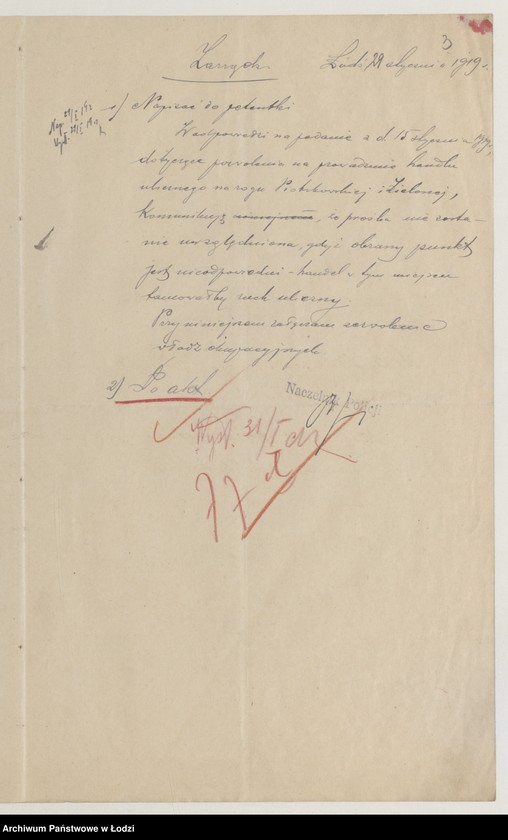 3
Zarząd.
Łódź, 29 stycznia 1919 r.
Nap. 29/I 19 r.
Wysł. 29/I 19 r.
1) Napisać do petentki
W odpowiedzi na podanie z d. 15 stycznia 1919 r.,
dotyczące pozwolenia na prowadzenie handlu
ulicznego na rogu Piotrkowskiej i Zielonej,
komunikuję, że prośba nie zosta-
nie uwzględniona, gdyż obrany punkt
jest nieodpowiedni - handel w tym miejscu
tamowałby ruch uliczny.
Przy niniejszem załączam zezwolenie
władz okupacyjnych
2) Do akt
Naczelnik Policji
Wysł. 31/I
Archiwum Państwowe w Łodzi